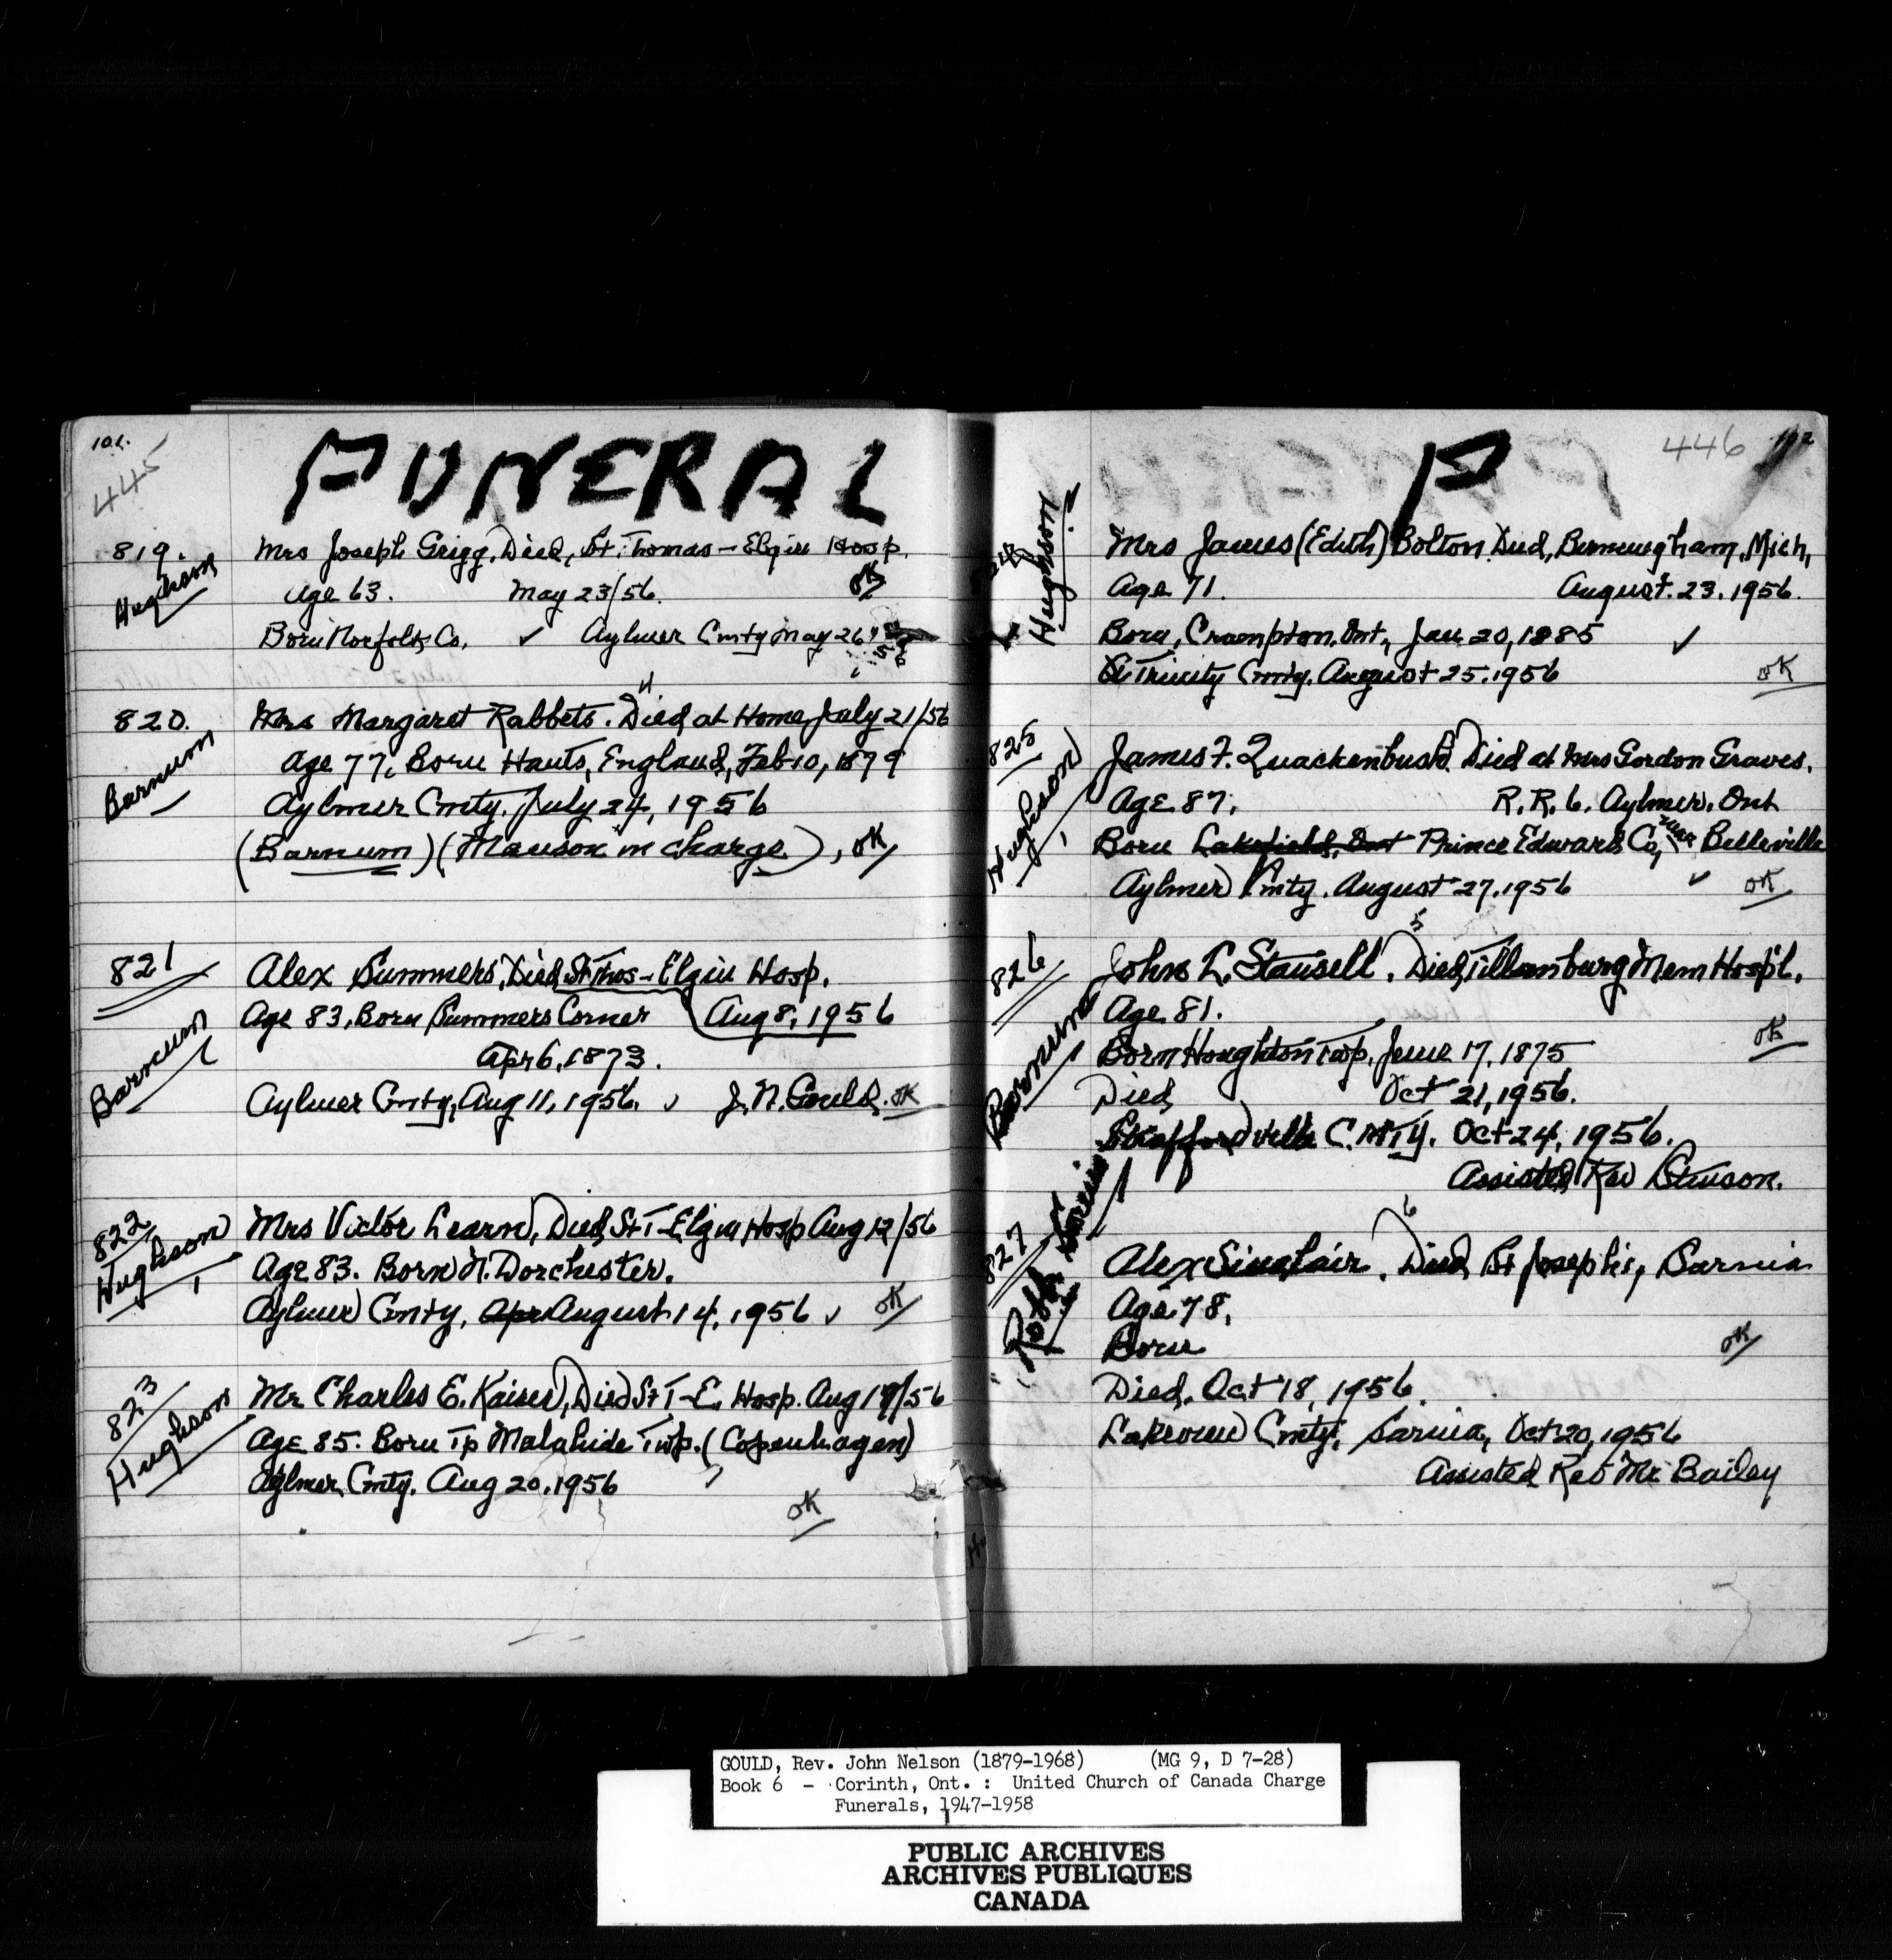 101.
445
FUNERAL
819.
Hughson
Mrs Joseph Grigg, Died, St. Thomas - Elgin Hosp.
Age 63. May 23/56. OK
Born Norfolk Co. ✓ Aylmer Cmty May 26
820.
Barnum
Mrs Margaret Rabbets. Died at Home, July 21/56
Age 77, Born Hants, England, Feb 10, 1879
Aylmer Cmty. July 24, 1956
(Barnum) (Manson in charge), OK
821
Barnum
Alex Summers, Died St Thos - Elgin Hosp.
Age 83, Born Summers Corner Aug 8, 1956
Apr 6, 1873.
Aylmer Cmty, Aug 11, 1956. ✓ J. N. Gould. OK
822
Hughson
Mrs Victor Learn, Died, St T - Elgin Hosp Aug 12/56
Age 83. Born N. Dorchester.
Aylmer Cmty, Apr August 14, 1956 ✓ OK
823
Hughson
Mr Charles E. Kaiser, Died St T - E. Hosp. Aug 17/56
Age 85. Born Tp Malahide Twp. (Copenhagen)
Aylmer Cmty. Aug 20, 1956
OK
446
102
824
Hughson
Mrs James (Edith) Bolton Died, Birmingham, Mich,
Age 71. August. 23. 1956.
Born, Crampton, Ont, Jan 20, 1885 ✓
Trinity Cmty, August 25. 1956 OK
825
Hughson
James F. Quackenbush. Died at Mrs Gordon Graves.
Age 87, R. R. 6. Aylmer. Ont
Born Lakefield, Ont Prince Edward Co, near Belleville
Aylmer Cmty. August 27. 1956 ✓ OK
826
Barnum
5
John L. Stansell. Died, Tillsonburg Mem Hosp'l.
Age 81.
OK
Born Houghton Twp. June 17, 1875
Died Oct 21, 1956.
Straffordville C.MTY. Oct 24, 1956.
Assisted Rev Stinson.
827
6
Alex Sinclair. Died St Joseph's, Sarnia
Age 78,
Born OK
Died. Oct 18, 1956.
Lakeview Cmty, Sarnia, Oct 20, 1956
Assisted Rev Mr Bailey
GOULD, Rev. John Nelson (1879-1968) (MG 9, D 7-28)
Book 6 - Corinth, Ont. : United Church of Canada Charge
Funerals, 1947-1958
PUBLIC ARCHIVES
ARCHIVES PUBLIQUES
CANADA